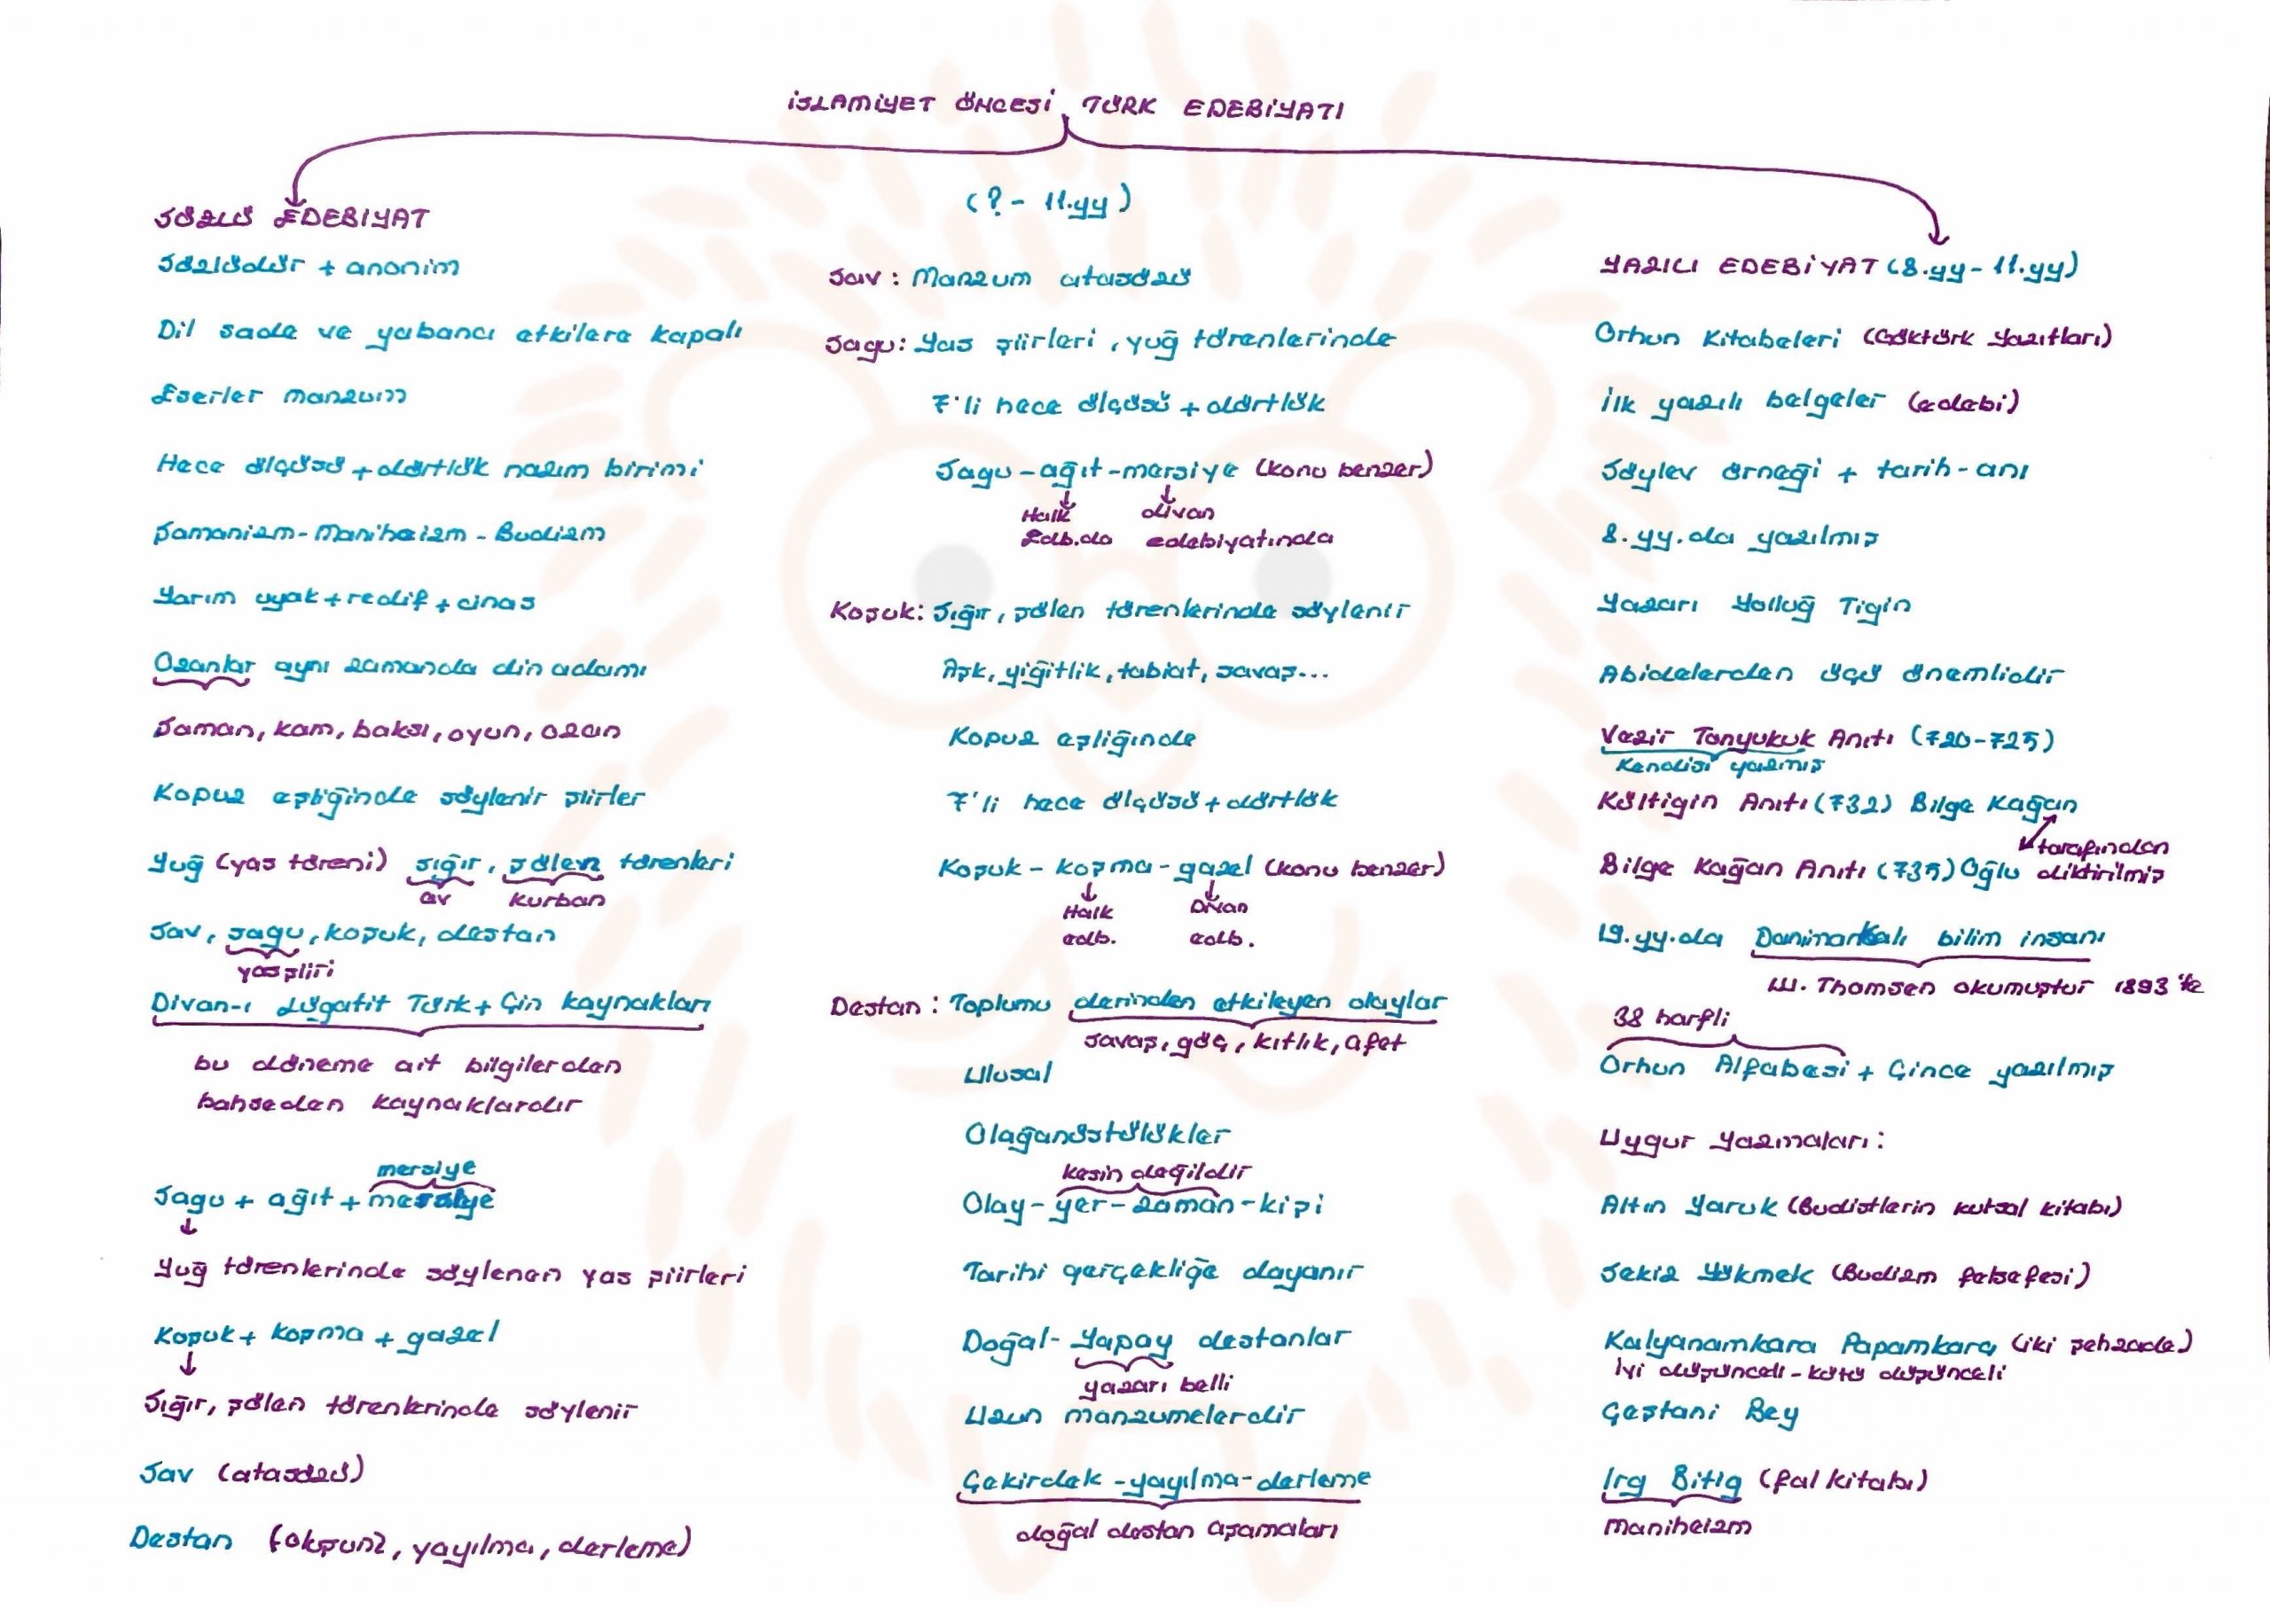 İSLAMİYET ÖNCESİ TÜRK EDEBİYATI
(? - 11.yy)
SÖZLÜ EDEBİYAT
Sözlüdür + anonim
Dil sade ve yabancı etkilere kapalı
Eserler manzum
Hece ölçüsü + dörtlük nazım birimi
Şamanizm - Maniheizm - Budizm
Yarım uyak + redif + cinas
Ozanlar aynı zamanda din adamı
Şaman, kam, baksı, oyun, ozan
Kopuz eşliğinde söylenir şiirler
Yuğ (yas töreni) sığır, şölen törenleri
av kurban
Sav, sagu, koşuk, destan
yas şiiri
Divan-ı Lügatit Türk + Çin kaynakları
bu döneme ait bilgilerden
bahseden kaynaklardır
mersiye
Sagu + ağıt +
Yuğ törenlerinde söylenen yas şiirleri
Koşuk + koşma + gazel
Sığır, şölen törenlerinde söylenir
Sav (atasözü)
Destan (okşunz, yayılma, derleme)
Sav : Manzum atasözü
Sagu: Yas şiirleri, yuğ törenlerinde
7'li hece ölçüsü + dörtlük
Sagu - ağıt - mersiye (konu benzer)
Halk divan
Edb.da edebiyatında
Koşuk: Sığır, şölen törenlerinde söylenir
Aşk, yiğitlik, tabiat, savaş...
Kopuz eşliğinde
7'li hece ölçüsü + dörtlük
Koşuk - koşma - gazel (konu benzer)
Halk Divan
edb. edb.
Destan : Toplumu derinden etkileyen olaylar
savaş, göç, kıtlık, afet
Ulusal
Olağanüstülükler
kesin değildir
Olay - yer - zaman - kişi
Tarihi gerçekliğe dayanır
Doğal - Yapay destanlar
yazarı belli
Uzun manzumelerdir
Çekirdek - yayılma - derleme
doğal destan aşamaları
YAZILI EDEBİYAT (8.yy - 11.yy)
Orhun Kitabeleri (Göktürk Yazıtları)
İlk yazılı belgeler (edebi)
Söylev örneği + tarih - anı
8. yy.da yazılmış
Yazarı Yolluğ Tigin
Abidelerden üçü önemlidir
Vezir Tonyukuk Anıtı (720-725)
Kendisi yazmış
Kültigin Anıtı (732) Bilge Kağan
tarafından
Bilge Kağan Anıtı (735) Oğlu diktirilmiş
19.yy.da Danimarkalı bilim insanı
W. Thomsen okumuştur 1893 'te
38 harfli
Orhun Alfabesi + Çince yazılmış
Uygur Yazmaları :
Altın Yaruk (Budistlerin kutsal kitabı)
Sekiz Yükmek (Budizm felsefesi)
Kalyanamkara Papamkara (iki şehzade)
İyi düşünceli - kötü düşünceli
Çeştani Bey
Irg Bitig (fal kitabı)
Maniheizm